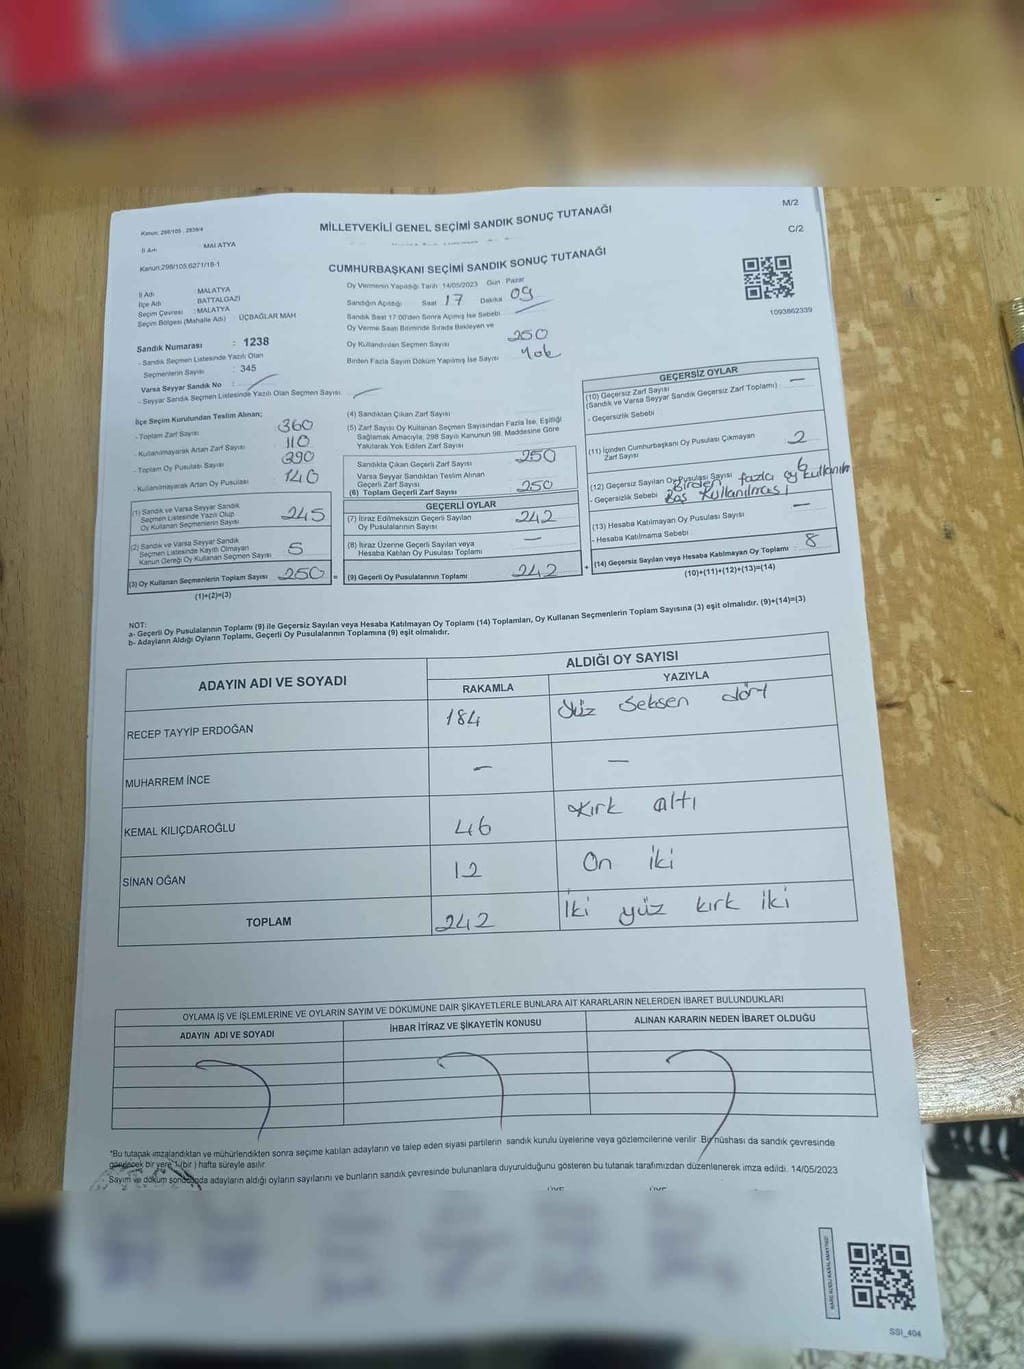 Kanun: 298/105 , 2839/4
M/2
İl Adı : MALATYA
MİLLETVEKİLİ GENEL SEÇİMİ SANDIK SONUÇ TUTANAĞI
C/2
Kanun:298/105.6271/18-1
CUMHURBAŞKANI SEÇİMİ SANDIK SONUÇ TUTANAĞI
İl Adı : MALATYA
İlçe Adı : BATTALGAZİ
Seçim Çevresi : MALATYA
Seçim Bölgesi (Mahalle Adı) : ÜÇBAĞLAR MAH
Sandık Numarası : 1238
- Sandık Seçmen Listesinde Yazılı Olan
Seçmenlerin Sayısı : 345
Varsa Seyyar Sandık No :
- Seyyar Sandık Seçmen Listesinde Yazılı Olan Seçmen Sayısı
Oy Vermenin Yapıldığı Tarih :14/05/2023 Gün : Pazar
Sandığın Açıldığı : Saat 17 Dakika 09
Sandık Saat 17:00'den Sonra Açmış İse Sebebi
Oy Verme Saati Bitiminde Sırada Bekleyen ve
Oy Kullandırılan Seçmen Sayısı 250
Birden Fazla Sayım Döküm Yapılmış İse Sayısı Yok
1093862339
İlçe Seçim Kurulundan Teslim Alınan;
- Toplam Zarf Sayısı 360
- Kullanılmayarak Artan Zarf Sayısı 110
- Toplam Oy Pusulası Sayısı 390
- Kullanılmayarak Artan Oy Pusulası 140
(1) Sandık ve Varsa Seyyar Sandık
Seçmen Listesinde Yazılı Olup
Oy Kullanan Seçmenlerin Sayısı 245
(2) Sandık ve Varsa Seyyar Sandık
Seçmen Listesinde Kayıtlı Olmayan
Kanun Gereği Oy Kullanan Seçmen Sayısı 5
(3) Oy Kullanan Seçmenlerin Toplam Sayısı 250 =
(1)+(2)=(3)
(4) Sandıktan Çıkan Zarf Sayısı
(5) Zarf Sayısı Oy Kullanan Seçmen Sayısından Fazla İse, Eşitliği
Sağlamak Amacıyla, 298 Sayılı Kanunun 98. Maddesine Göre
Yakılarak Yok Edilen Zarf Sayısı
Sandıkta Çıkan Geçerli Zarf Sayısı 250
Varsa Seyyar Sandıktan Teslim Alınan
Geçerli Zarf Sayısı
(6) Toplam Geçerli Zarf Sayısı 250
GEÇERLİ OYLAR
(7) İtiraz Edilmeksizin Geçerli Sayılan
Oy Pusulalarının Sayısı 242
(8) İtiraz Üzerine Geçerli Sayılan veya
Hesaba Katılan Oy Pusulası Toplamı —
(9) Geçerli Oy Pusulalarının Toplamı 242 +
GEÇERSİZ OYLAR
(10) Geçersiz Zarf Sayısı —
(Sandık ve Varsa Seyyar Sandık Geçersiz Zarf Toplamı)
- Geçersizlik Sebebi
(11) İçinden Cumhurbaşkanı Oy Pusulası Çıkmayan
Zarf Sayısı 2
(12) Geçersiz Sayılan Oy Pusulası Sayısı 6
- Geçersizlik Sebebi Birden fazla oy kullanım
Boş Kullanılması
(13) Hesaba Katılmayan Oy Pusulası Sayısı —
- Hesaba Katılmama Sebebi
(14) Geçersiz Sayılan veya Hesaba Katılmayan Oy Toplamı : 8
(10)+(11)+(12)+(13)=(14)
NOT:
a- Geçerli Oy Pusulalarının Toplamı (9) ile Geçersiz Sayılan veya Hesaba Katılmayan Oy Toplamı (14) Toplamları, Oy Kullanan Seçmenlerin Toplam Sayısına (3) eşit olmalıdır. (9)+(14)=(3)
b- Adayların Aldığı Oyların Toplamı, Geçerli Oy Pusulalarının Toplamına (9) eşit olmalıdır.
ADAYIN ADI VE SOYADI
ALDIĞI OY SAYISI
RAKAMLA YAZIYLA
RECEP TAYYİP ERDOĞAN 184 Yüz Seksen dört
MUHARREM İNCE — —
KEMAL KILIÇDAROĞLU 46 Kırk altı
SİNAN OĞAN 12 On iki
TOPLAM 242 İki yüz kırk iki
OYLAMA İŞ VE İŞLEMLERİNE VE OYLARIN SAYIM VE DÖKÜMÜNE DAİR ŞİKAYETLERLE BUNLARA AİT KARARLARIN NELERDEN İBARET BULUNDUKLARI
ADAYIN ADI VE SOYADI İHBAR İTİRAZ VE ŞİKAYETİN KONUSU ALINAN KARARIN NEDEN İBARET OLDUĞU
*Bu tutanak imzalandıktan ve mühürlendikten sonra seçime katılan adayların ve talep eden siyasi partilerin sandık kurulu üyelerine veya gözlemcilerine verilir. Bir nüshası da sandık çevresinde
görülecek bir yere 1 (bir ) hafta süreyle asılır.
Sayım ve döküm sonucunda adayların aldığı oyların sayılarını ve bunların sandık çevresinde bulunanlara duyurulduğunu gösteren bu tutanak tarafımızdan düzenlenerek imza edildi. 14/05/2023
ÜYE ÜYE
SSI_404